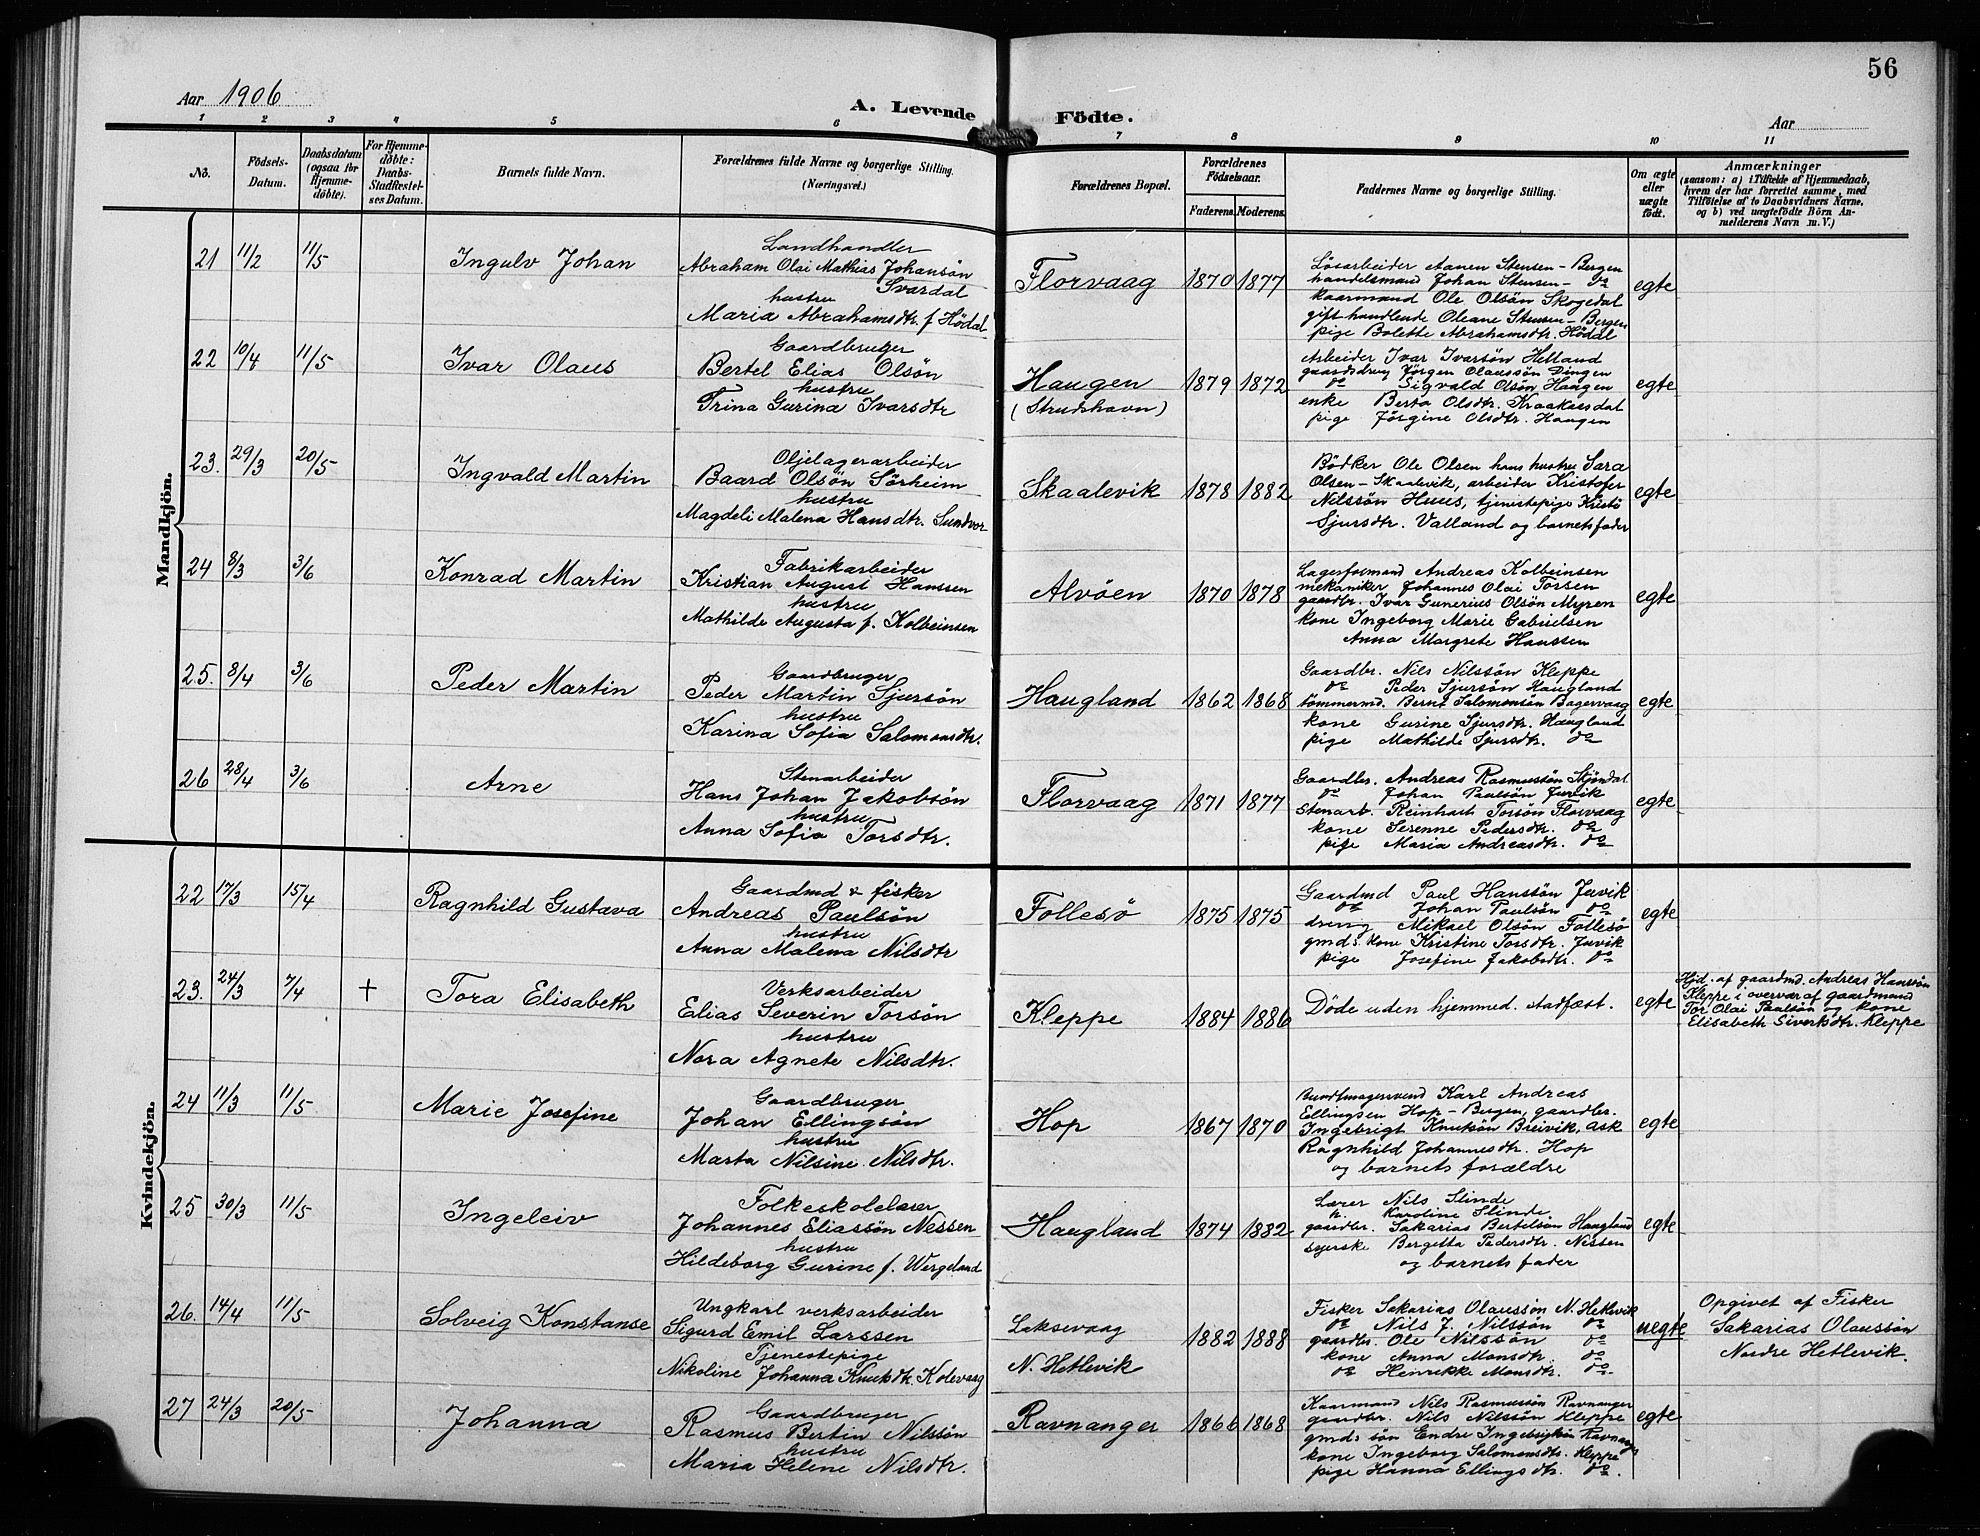 56
Aar 1906
A. Levende Födte.
Aar
1 2 3 4 5 6 7 8 9 10 11
No.
Födsels-
Datum.
Daabsdatum
(ogsaa for
Hjemme-
döbte).
For Hjemme-
döbte:
Daabs-
Stadfæstel-
ses Datum.
Barnets fulde Navn.
Forældrenes fulde Navne og borgerlige Stilling.
(Næringsvei.)
Forældrenes Bopæl.
Forældrenes
Födselsaar.
Faderens. Moderens.
Faddernes Navne og borgerlige Stilling.
Om ægte
eller
uægte
födt.
Anmærkninger
(saasom: a) i Tilfælde af Hjemmedaab,
hvem der har forrettet samme, med
Tilföielse af to Daabsvidners Navne,
og b) ved uægtefödte Börn An-
melderens Navn m. V.)
Mandkjön.
21 11/2 11/5 Ingulv Johan
Landhandler
Abraham Olai Mathias Johansön
Svardal
hustru
Maria Abrahamsdtr. f Hödal
Florvaag 1870 1877
Lösarbeider Aanen Stensen – Bergen
handelsmand Johan Stensen – do
kaarmand Ole Olsön Skogedal
gift handlende Oleane Stensen – Bergen
pige Bolette Abrahamsdtr. Hödal
egte
22 10/4 11/5 Ivar Olaus
Gaardbruger
Bertel Elias Olsön
hustru
Trina Gurina Ivarsdtr
Haugen
(Strudshavn)
1879 1872
Arbeider Ivar Ivarsön Hetland
gaardsdreng Jörgen Olaussön Dingen
do Sigvald Olsön Haugen
enke Berta Olsdtr. Kraakaasdal
pige Jörgine Olsdtr. Haugen
egte
23. 29/3 20/5 Ingvald Martin
Oljelagerarbeider
Baard Olsön Sörheim
hustru
Magdeli Malena Hansdtr. Sundvor
Skaalevik 1878 1882
Bödker Ole Olsen hans hustru Sara
Olsen – Skaalevik, arbeider Kristofer
Nilssön Huus, tjenestepige Kristö
Sjursdtr. Valland og barnets fader
egte
24 8/3 3/6 Konrad Martin
Fabrikarbeider
Kristian August Hanssen
hustru
Mathilde Augusta f. Kolbeinsen
Alvöen 1870 1878
Lagerformand Andreas Kolbeinsen
mekaniker Johannes Olai Torsen
gaardbr. Ivar Gunerius Olsön Myren
kone Ingeborg Marie Gabrielsen
Anna Margrete Hanssen
egte
25. 8/4 3/6 Peder Martin
Gaardbruger
Peder Martin Sjursön
hustru
Karina Sofia Salomonsdtr.
Haugland 1862 1868
Gaardbr. Nils Nilssön Kleppe
do Peder Sjursön Haugland
tömmermd. Bernt Salomonsön Bagervaag
kone Gurine Sjursdtr. Haugland
pige Mathilde Sjursdtr. do
egte
26 28/4 3/6 Arne
Stenarbeider
Hans Johan Jakobsön
hustru
Anna Sofia Torsdtr.
Florvaag 1871 1877
Gaardbr. Andreas Rasmussön Skjöndal
do Johan Paulsön Juvik
Stenarb. Reinhart Torsön Florvaag
kone Serenne Pedersdtr. do
pige Maria Andreasdtr. do
egte
Kvindekjön.
22 17/3 15/4 Ragnhild Gustava
Gaardmd & fisker
Andreas Paulsön
hustru
Anna Malena Nilsdtr
Follesö 1875 1875
Gaardmd Paul Hanssön Juvik
do Johan Paulsön do
dreng Mikael Olsön Follesö
gmds. kone Kristine Torsdtr. Juvik
pige Josefine Jakobsdtr. do
egte
23. 24/3 7/4 + Tora Elisabeth
Verksarbeider
Elias Severin Torsön
hustru
Nora Agnete Nilsdtr.
Kleppe 1884 1886
Döde uden hjemmed. stadfæst.
egte
Hjd. af gaardmd. Andreas Hanssön
Kleppe i overvær af gaardmand
Tor Olai Paulsön og kone
Elisabeth Sivertsdtr. Kleppe
24 11/3 11/5 Marie Josefine
Gaardbruger
Johan Ellingsön
hustru
Marta Nilsine Nilsdtr.
Hop 1867 1870
Bundtmagersvend Karl Andreas
Ellingsen Hop – Bergen, gaardbr.
Ingebrigt Knutsön Breivik, Ask
Ragnhild Johannesdtr. Hop
og barnets forældre
egte
25 30/3 11/5 Ingeleiv
Folkeskolelærer
Johannes Eliassön Nessen
hustru
Hildeborg Gurine f. Wergeland
Haugland 1874 1882
Lærer Nils Slinde
h. Karoline Slinde
gaardbr. Sakarias Bertelsön Haugland
syerske Bergetta Pedersdtr. Nessen
og barnets fader
egte
26. 14/4 11/5 Solveig Konstanse
Ungkarl verksarbeider
Sigurd Emil Larssen
Tjenestepige
Nikoline Johanna Knutsdtr. Kolevaag
Laksevaag
N. Hetlevik
1882 1888
Fisker Sakarias Olaussön N. Hetlevik
do Nils J. Nilssön do
gaardbr. Ole Nilssön do
kone Anna Monsdtr. do
do Henrikke Monsdtr. do
uegte
Opgivet af Fisker
Sakarias Olaussön
Nordre Hetlevik.
27 24/3 20/5 Johanna
Gaardbruger
Rasmus Bertin Nilssön
hustru
Maria Helene Nilsdtr.
Ravnanger 1866 1868
Kaarmand Nils Rasmussön Ravnanger
gaardbr. Nils Nilssön Kleppe
gmds sön Endre Ingebrigtsön Ravnang.
kone Ingeborg Salomonsdtr. Kleppe
pige Hanna Ellingsdtr. do.
egte